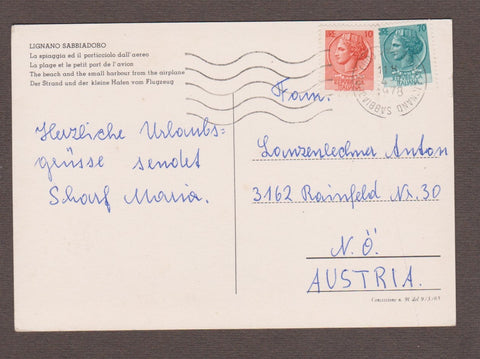 LIGNANO SABBIADORO
La spiaggia ed il porticciolo dall'aereo
La plage et le petit port de l'avion
The beach and the small harbour from the airplane
Der Strand und der kleine Hafen vom Flugzeug
10
70
LIGNANO SABBIADORO
Herzliche Urlaubs-
grüsse sendet
Scharf Maria.
Fam.
Lanzenlechner Anton
3162 Rainfeld Nr. 30
N.Ö.
AUSTRIA.
Concessione n. 91 del 9/3/65